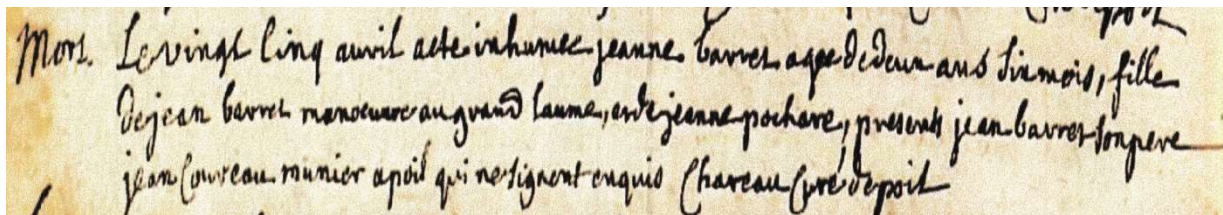 Mort. Le vingt cinq auvil a ete inhumee jeanne barret agee de deux ans six mois, fille
de jean barret manoeuvre au grand laume, et de jeanne pochare, presents jean barret son pere
jean Coureau munier a poil qui ne signent enquis Chareau Curé de poil